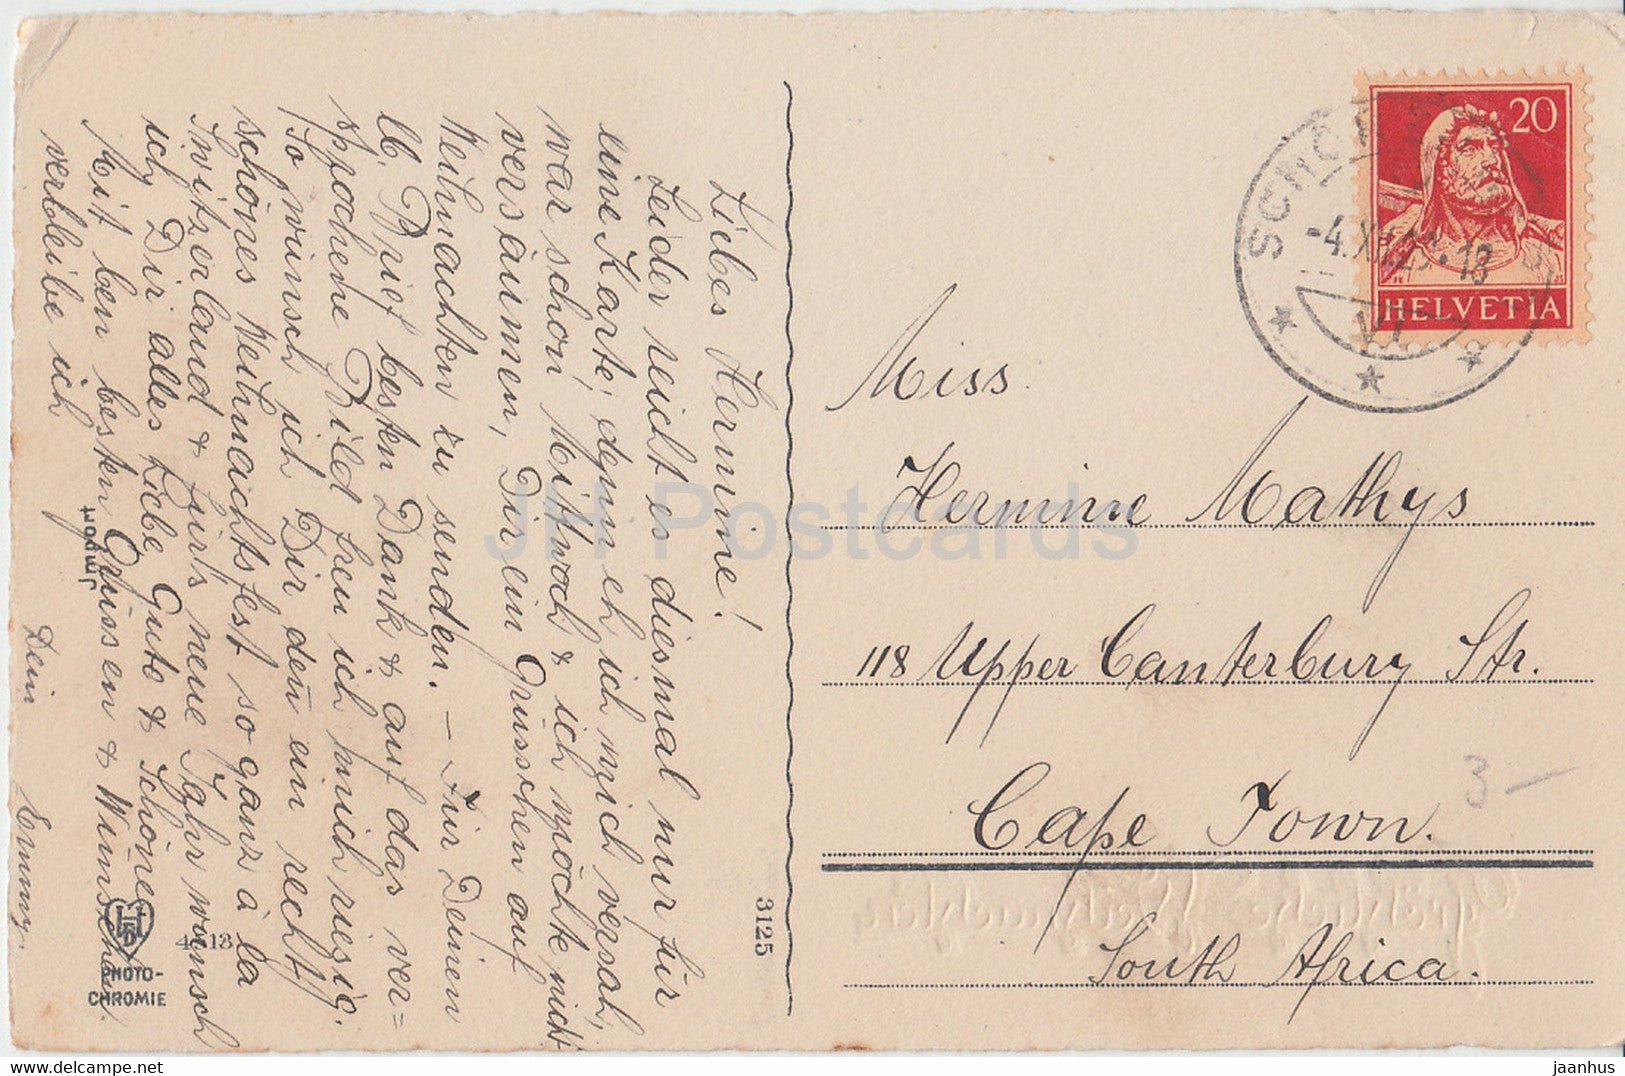 Liebes Hermine!
Leider reicht es diesmal nur für
eine Karte, denn eh ich mich versah,
war schon Mittwoch & ich möchte nicht
versäumen, Dir ein Grüsschen auf
Weihnachten zu senden. – Für Deinen
lb. Brief besten Dank & auf das ver=
sprochene Bild freu ich mich riesig.
So wünsch ich Dir deñ ein recht
schönes Weihnachtsfest so ganz à la
Switzerland & fürs neue Jahr wünsch
ich Dir alles Liebe Gute & Schöne.
Mit den besten Grüssen & Wünschen
verbleibe ich
Dein Emmy.
Import
HB
4413
PHOTO-
CHROMIE
3125
20
HELVETIA
-4.XII.2 .18
VI
Miss.
Hermine Mathys
118 Upper Canterbury Str.
Cape Town.
South Africa.
3 –
JH Postcards
jaanhus